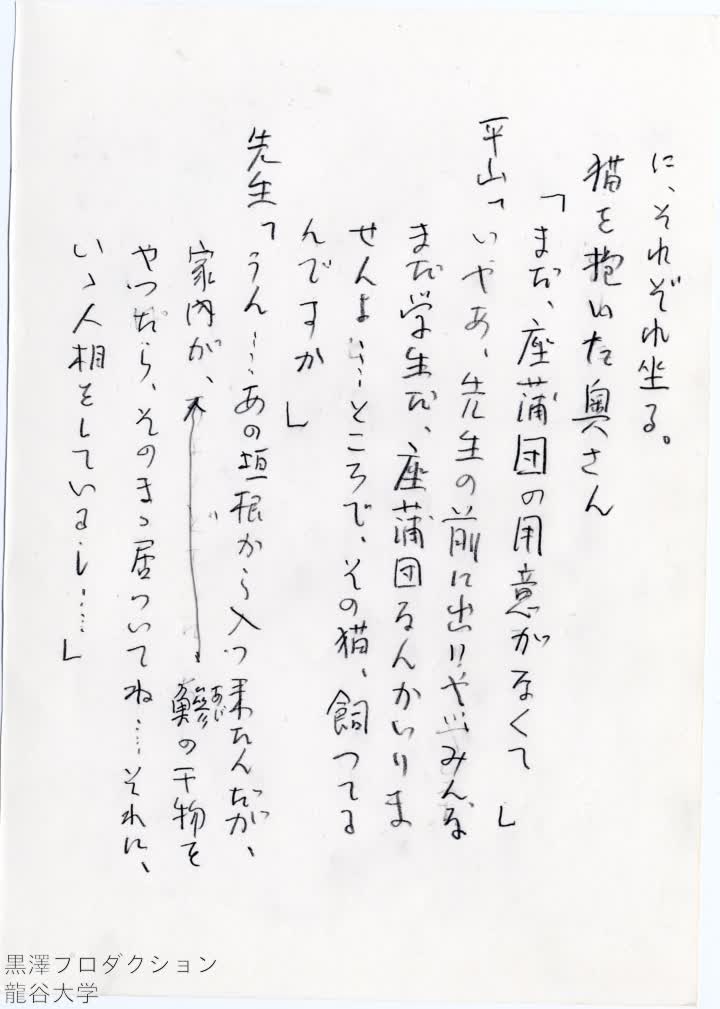 に、それぞれ坐る。
猫を抱いた奥さん
「まだ、座蒲団の用意がなくて」
平山「いやあ、先生の前に出りやァみんな
まだ学生だ、座蒲団なんかいりま
せんよ……ところで、その猫、飼つてる
んですか」
先生「うん……あの垣根から入つ来たんだが、
家内が、鯵の干物を
あじ
やつたら、そのまゝ居ついてね……それに、
いゝ人相をしているし……」
黒澤プロダクション
龍谷大学